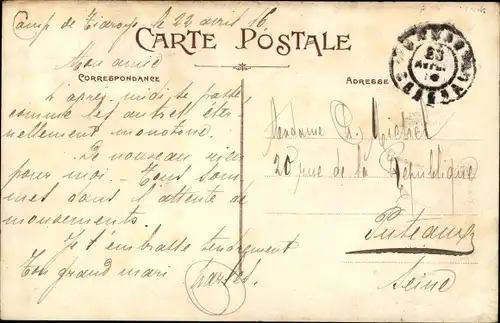 Camp de le 22 avril 16
CARTE POSTALE
CORRESPONDANCE
ADRESSE
23
AVRIL
16
Mon amie
L'après-midi se passe
comme les autres éter-
nellement monotone.
De nouveau rien
pour moi - Nous som-
mes dans l'attente de
mouvements.
Je t'embrasse tendrement
Ton grand mari
Madame Ch. Michel
20 rue de la République
Puteaux
Seine